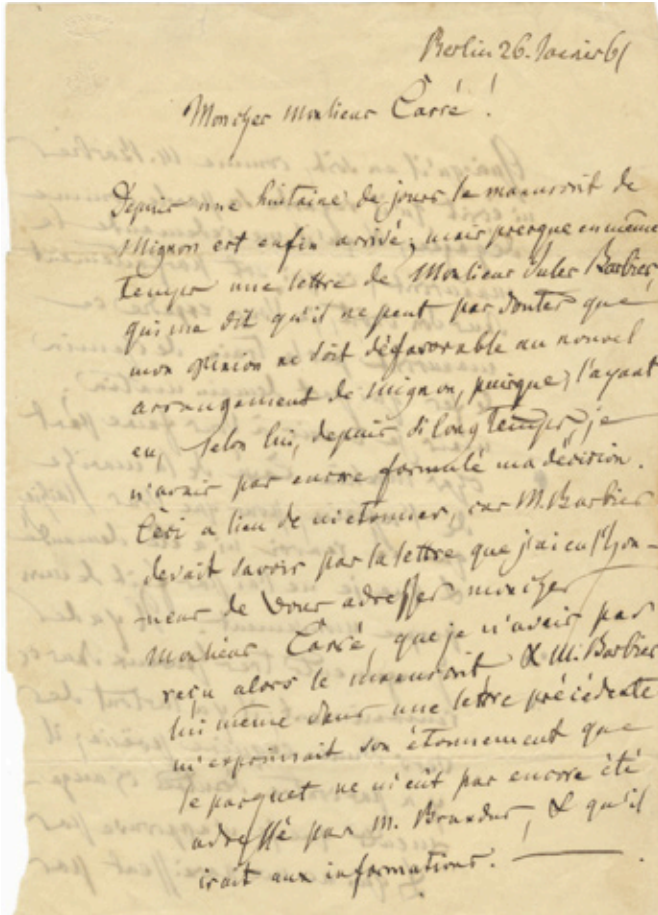 Berlin 26. Janvier 61
Mon cher Monsieur Carré!
Depuis une huitaine de jours le manuscrit de
Mignon est enfin arrivé; mais presque en même
temps une lettre de Monsieur Jules Barbier,
qui me dit qu'il ne peut pas douter que
mon opinion ne soit défavorable au nouvel
arrangement de Mignon, puisque, l'ayant
eu, selon lui, depuis si longtemps, je
n'avais pas encore formulé ma décision.
Ceci a lieu de m'étonner, car M. Barbier
devait savoir par la lettre que j'ai eu l'hon-
neur de Vous adresser mon cher
Monsieur Carré, que je n'avais pas
reçu alors le manuscrit & M. Barbier
lui même dans une lettre précédente
m'exprimait son étonnement que
le paquet ne m'eût pas encore été
adressé par M. Brandus, & qu'il
irait aux informations.